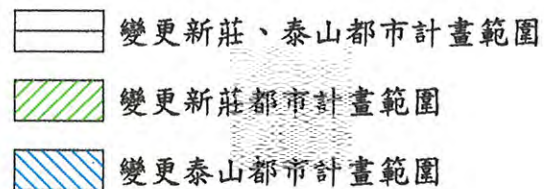 變更新莊、泰山都市計畫範圍
變更新莊都市計畫範圍
變更泰山都市計畫範圍